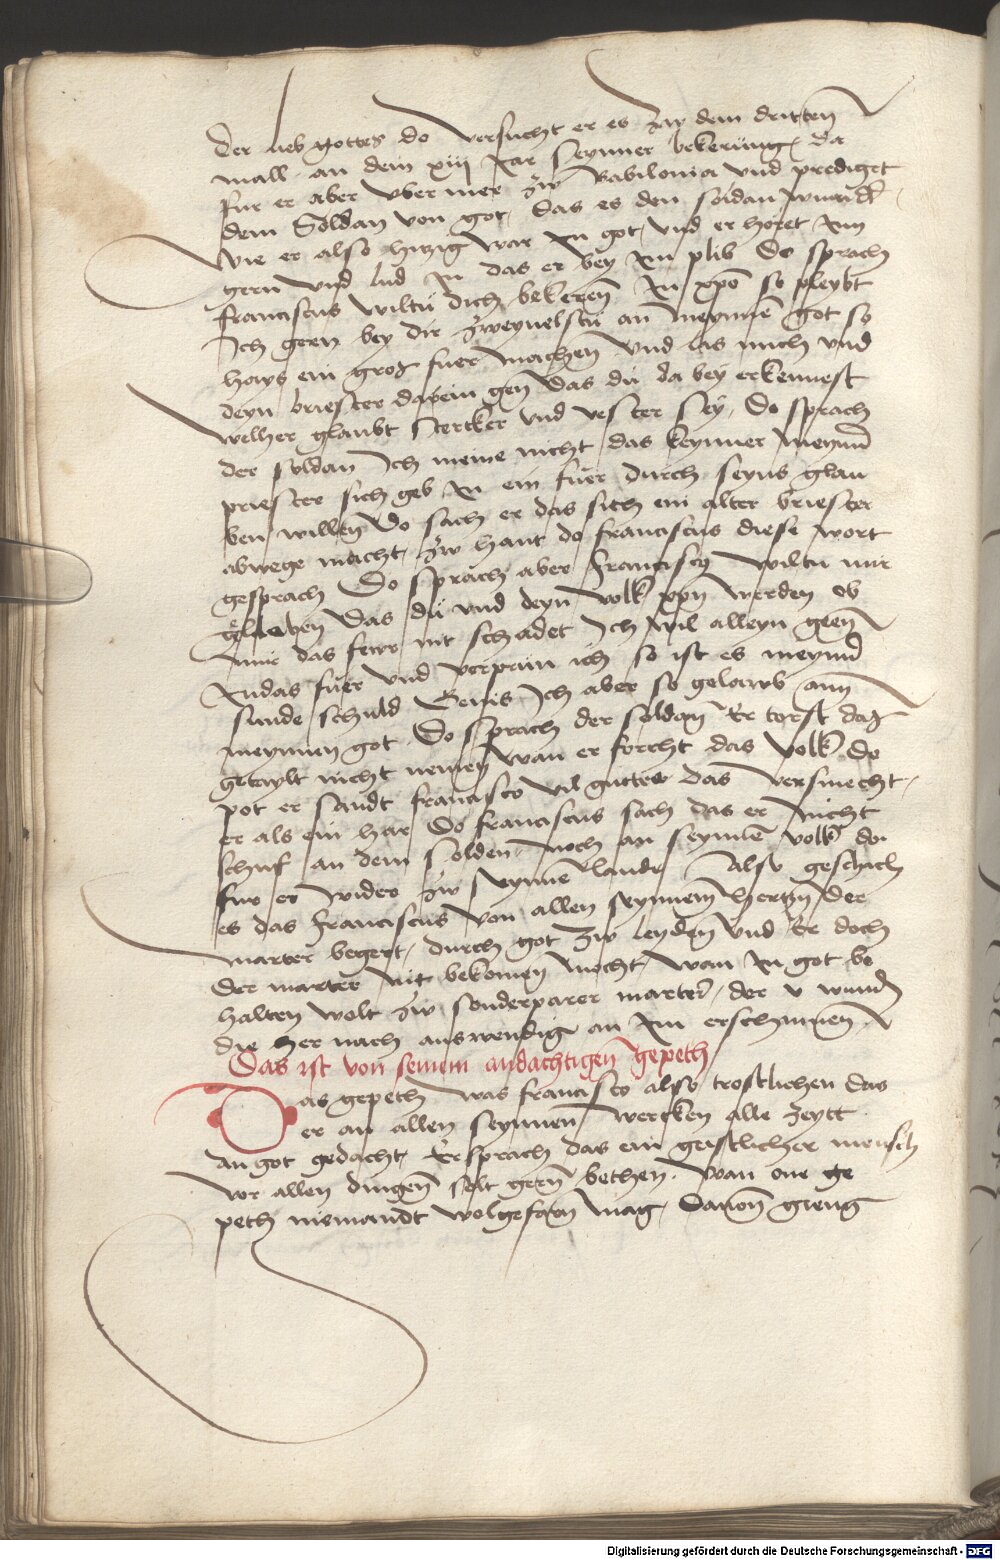 der lieb gottes do versucht er es zw dem dritten
mall an dem xiij Jar seynner bekerung Da
fur er aber vber mer zw Babilonia vnd prediget
dem Soldan von got, das es den soldan wundert
Wie er also hizig war yn got vnd er horet ym
gern vnd lud yn das er bey ym plib Do sprach
Franciscus wiltu dich bekeren yn xpo so pleybt
Ich gern bey dir zweyuelstu an meynnem got so
hays ein groß fuer machen vnd las mich vnd
deyn briester darein gen Das du da bey erkennest
welher glaubt stercker vnd vester sey, Do sprach
der soldan Ich meine nicht das keynner meyner
priester sich geb yn ein fuer durch seyns glau
ben willen Do sach er das sich ein alter briester
abwege macht, zw hant do franciscus diese wort
gesprach Do sprach aber Franciscus wiltu mir
geloben Das du vnd deyn volk xpn werden ob
mir das fewr nit schadet Ich wil alleyn geen
yn das fuer vnd verprin ich so ist es meynner
sunde schuld Genis Ich aber so gelawb ann
meynnen got Do sprach der soldan Er torst daz
getaylt nicht nemen wan er forcht das volk do
pot er sandt francisco vil gutter das versmecht
er als ein har Do franciscus sach das er nicht
schuf an dem solden noch an seynnem volk do
fur er wider zw seynnem lande Also geschich
es das franciscus von allen seynnem hertzn der
marter begert, durch got zw leyden vnd Er doch
der marter nit bekomen mocht wan yn got be
halten wolt zw sonderparer marter, der v wunden
die her nach auswendig an ym erschinnen
Das ist von seinem andachtigen gepeth
Das gepeth was francisco also trostlichen das
er an allen seynnen wercken alle zeytt
an got gedacht, Er sprach das ein geistlicher mensch
vor allen dingen solt gern bethen. wan one ge
peth niemandt wolgefarn mag, Dauon gieng
Digitalisierung gefördert durch die Deutsche Forschungsgemeinschaft - DFG